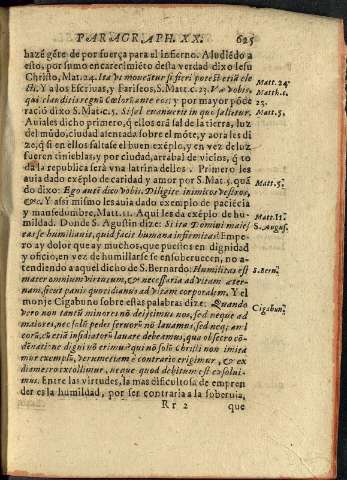 PARAGRAPH. XX. 625
hazẽ gẽte de por fuerça para el infierno. Aludiẽdo a
esto, por sumo encarecimiẽto desta verdad dixo Iesu
Christo, Mat. 24. Ita vt moneatur si fieri potest etiã ele
cti. Y a los Escriuas, y Fariseos, S. Matt. c. 23. Væ vobis,
qui clauditis regnũ Cœlorũ ante eos: y por mayor põde
ració dixo S. Mat. c. 5. Si sal euanuerit in quo salietur.
Auiales dicho primero, q̃ ellos erã sal de la tierra, luz
del mũdo, ciudad assentada sobre el mõte, y aora les di
ze, q̃ si en ellos faltase el buen exẽplo, y en vez de luz
fueren tinieblas, y por ciudad, arrabal de vicios, q̃ to
da la republica serà vna latrina dellos. Primero les
auia dado exẽplo de caridad y amor por S. Mat. 5. quã
do dixo: Ego autẽ dico vobis. Diligite inimicos vestros,
&c. Y assi mismo les auia dado exemplo de paciẽcia
y mansedumbre, Matt. 11. Aqui les da exẽplo de hu-
mildad. Donde S. Agustin dize: Si ita Domini maies
tas se humiliauit, quid facit humana infirmitas? Empe
ro ay dolor que ay muchos, que puestos en dignidad
y oficio, en vez de humillarse se ensoberuecen, no a-
tendiendo a aquel dicho de S. Bernardo: Humilitas est
mater omnium virtutum, & necessaria ad vitam æter-
nam, sicut panis quotidianus ad vitam corporalem. Y el
monje Cigabuno sobre estas palabras dize: Quando
vero non tantũ minores nõ dejicimus nos, sed neque ad
maiores, nec solũ pedes seruorũ nõ lauamus, sed neq; ami
corũ, cũ etiã insidiatorũ lauare debeamus, qua obsecro cõ
dẽnatione digni nõ erimus? qui nõ solũ Christi non imita
mur exempli, verumetiam è contrario erigimur, & ex
diametro extollimur, neque quod debitum est exsolui-
mus. Entre las virtudes, la mas dificultosa de empren
der es la humildad, por ser contraria a la soberuia,
Rr 2 que
Matt. 24.
Matth. c.
23.
Matt. 5.
Matt. 5.
Matt. 11.
S. Augus.
S. Bern.
Cigabun.